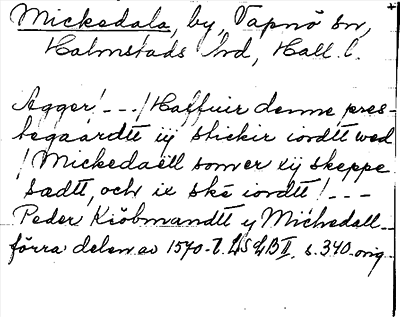 Mickedala, by, Vapnö sn,
Halmstads hd, Hall. l.
Agger! --- / Haffuir denne pres-
tegaardtt iij stickir iordtt wed
! Mickedaell som er xij skeppe
sædtt, och ix ské iordtt! ---
Peder Kiöbmandtt y Michedall
förra delen av 1570-t. LSLB II, s. 340 orig.